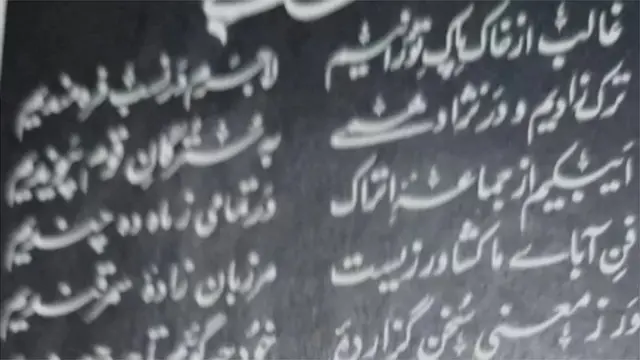 غالب از خاک پاک تورانیم لاجرم در نسب فرہمندیم
ترک زادیم و در نژاد ہمے بہ سترگان قوم پیوندیم
ایبکیم از جماعۂ اتراک در تمامی ز ماہ دہ چندیم
فنِ آبائے ما کشاورزیست مرزبان زادۂ سمرقندیم
ور ز معنی سخن گزاردۂ خود چہ گوئیم تا چہ